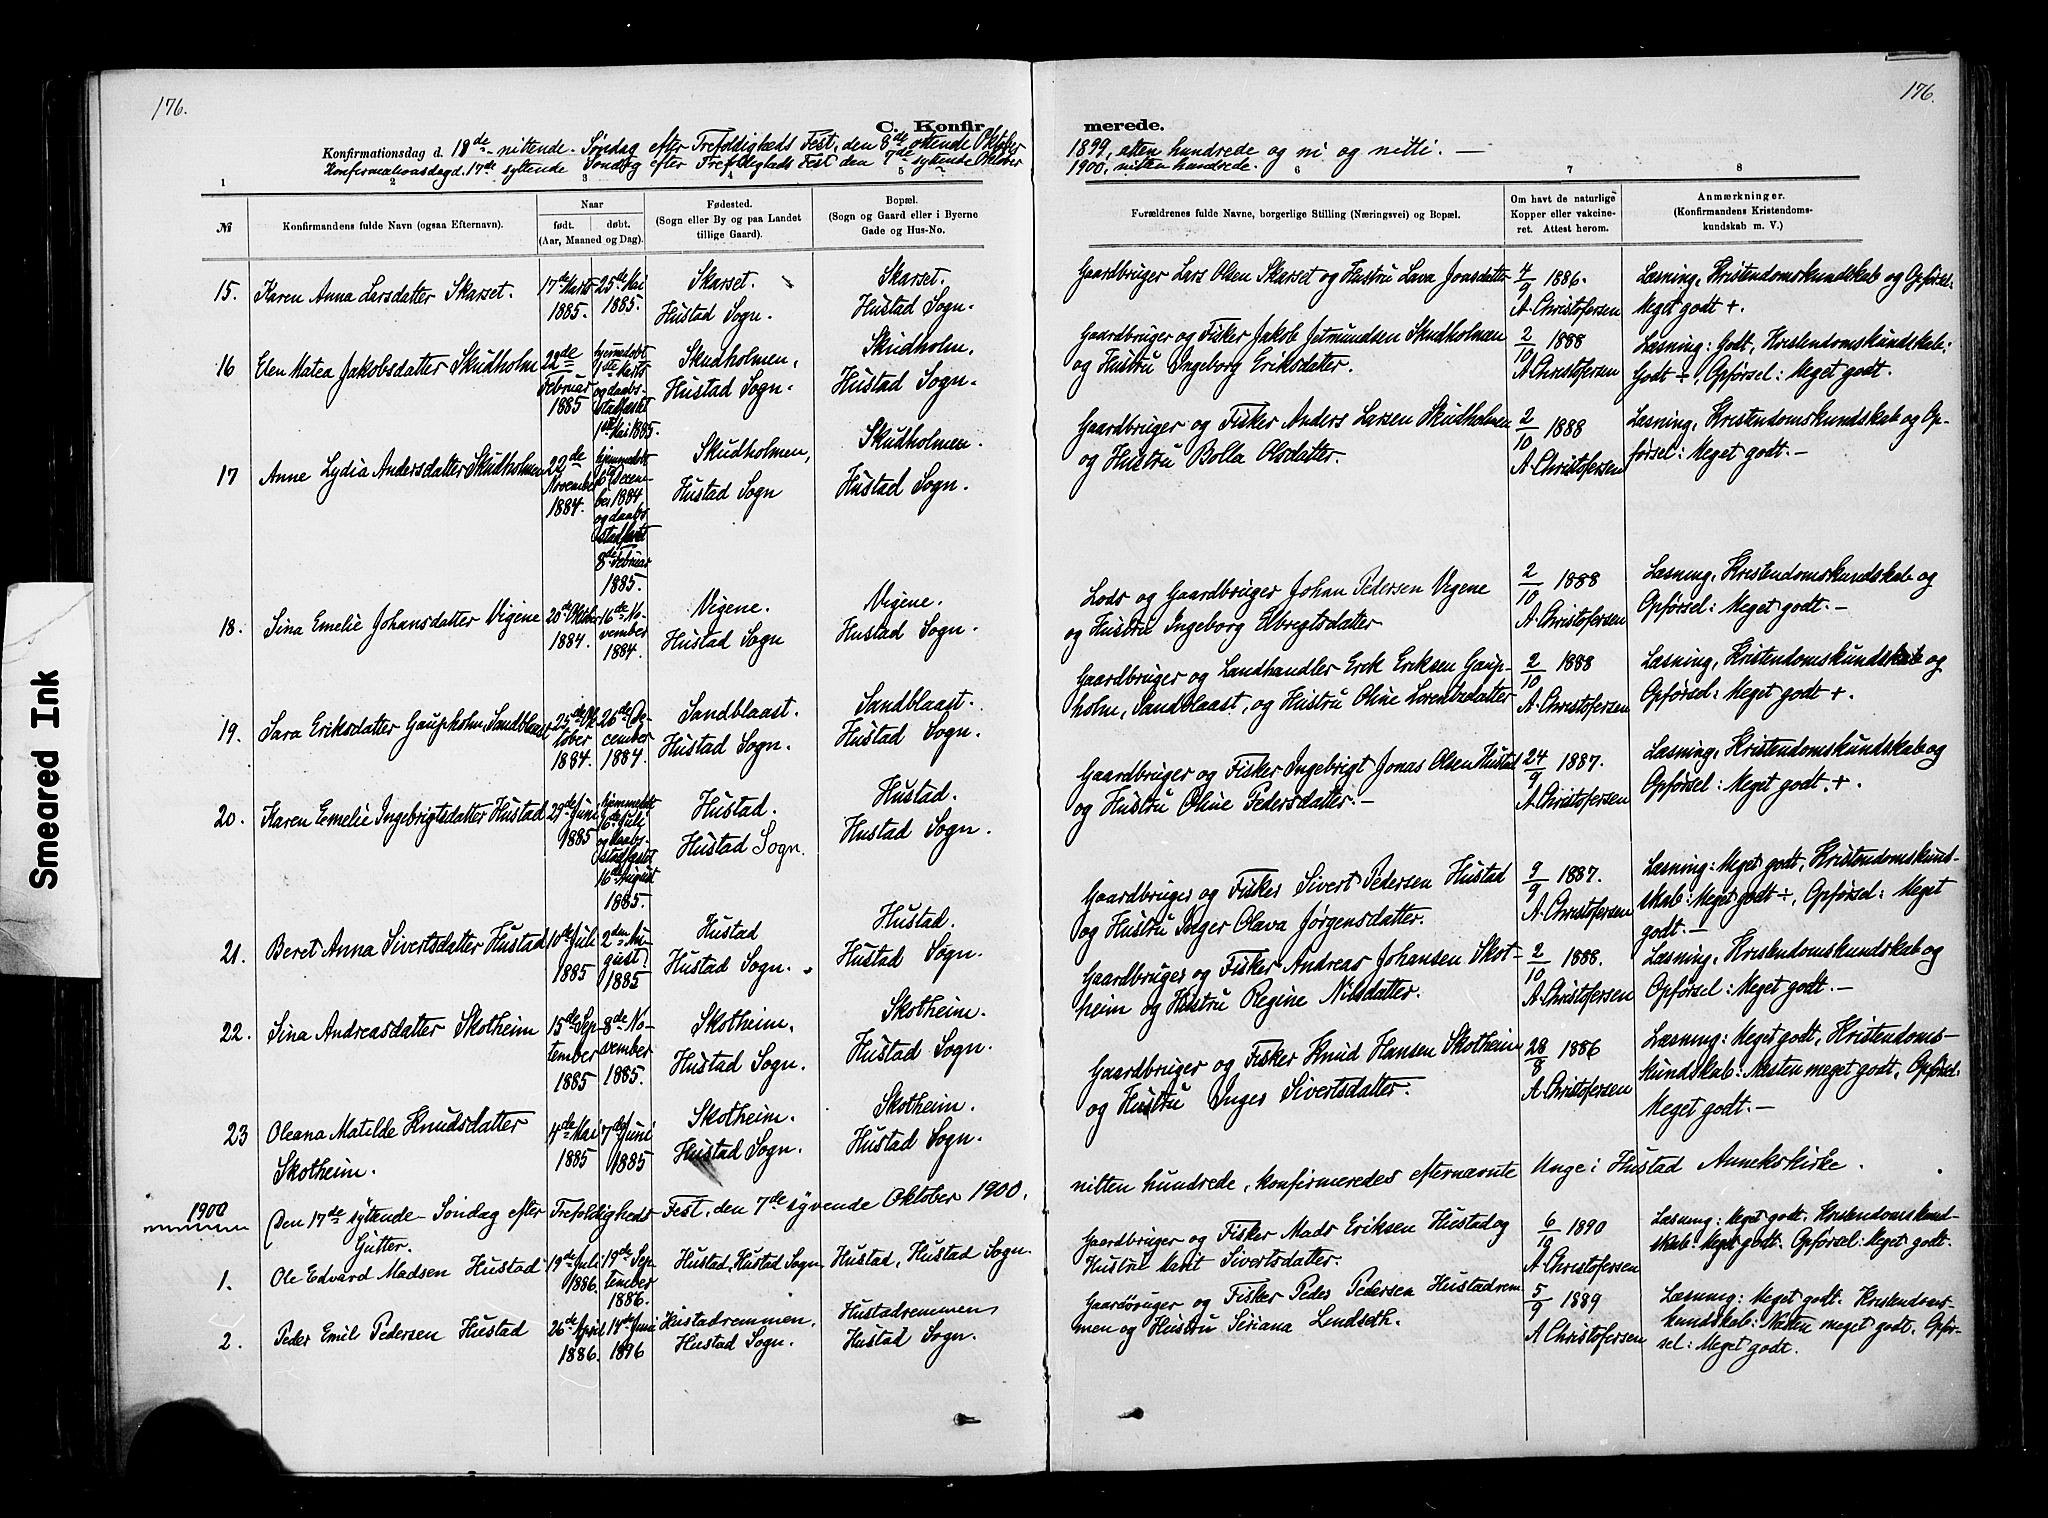 176.
176.
C. Konfir
merede.
Konfirmationsdag d. 18de - nittende - Søndag efter Trefoldigheds Fest, den 8de ottende Oktober
1899, atten hundrede og ni og nitti. —
Konfirmationsdag d. 17de syttende Søndag efter Trefoldigheds Fest den 7de syttende Oktober
1900, nitten hundrede.
1 2 3 4 5 6 7 8
№
Konfirmandens fulde Navn (ogsaa Efternavn).
Naar
født. døbt.
(Aar, Maaned og Dag).
Fødested.
(Sogn eller By og paa Landet
tillige Gaard).
Bopæl.
(Sogn og Gaard eller i Byerne
Gade og Hus-No.
Forældrenes fulde Navne, borgerlige Stilling (Næringsvei) og Bopæl.
Om havt de naturlige
Kopper eller vakcine-
ret. Attest herom.
Anmærkninger.
(Konfirmandens Kristendoms-
kundskab m. V.)
15. Karen Anna Larsdatter Skarset.
17de Marts
1885.
25de Mai
1885.
Skarset.
Hustad Sogn.
Skarset.
Hustad Sogn.
Gaardbruger Lars Olsen Skarset og Hustru Lava Jonsdatter
4/9 1886.
A. Christofersen
Læsning, Kristendomskundskab og Opførsel:
Meget godt +.
16 Elen Matea Jakobsdatter Skudholm
22de
Februar
1885
hjemmedøbt
1ste Marts
og daabs-
stadfæstet
1ste Mai 1885.
Skudholmen,
Hustad Sogn.
Skudholm.
Hustad Sogn.
Gaardbruger og Fisker Jakob Jetmundsen Skudholmen
og Hustru Ingeborg Eriksdatter.
2/10 1888
A. Christofersen
Læsning: Godt, Kristendomskundskab:
Godt ÷, Opførsel: Meget godt.
17 Anne Lydia Andersdatter Skudholmen
22de
November
1884.
hjemmedøbt
6te Decem-
ber 1884.
og daabs-
stadfæstet
8de Februar
1885.
Skudholmen,
Hustad Sogn
Skudholmen.
Hustad Sogn.
Gaardbruger og Fisker Anders Larsen Skudholmen
og Hustru Bolla Olsdatter.
2/10 1888
A. Christofersen
Læsning, Kristendomskundskab og Op-
førsel: Meget godt. —
18. Sina Emelie Johansdatter Vigene
20de Oktober
1884.
16de No-
vember
1884.
Vigene.
Hustad Sogn
Vigene.
Hustad Sogn.
Lods og Gaardbruger Johan Pedersen Vegene
og Hustru Ingeborg Elbrigtsdatter
2/10 1888
A. Christofersen
Læsning, Kristendomskundskab og
Opførsel: Meget godt. —
19. Sara Eriksdatter Gaupholm, Sandblaast
25de Ok-
tober
1884.
26de De-
cember
1884.
Sandblaast.
Hustad Sogn.
Sandblaast.
Hustad Sogn.
Gaardbruger og Landhandler Erik Eriksen Gaup-
holm, Sandblaast, og Hustru Oline Lorentzdatter
2/10 1888
A. Christofersen
Læsning, Kristendomskundskab og
Opførsel: Meget godt +.
20. Karen Emelie Ingebrigtsdatter Hustad
29de Juni
1885
hjemmedøbt
6te Juli
og daabs-
stadfæstet
16de August
1885.
Hustad.
Hustad Sogn.
Hustad.
Hustad Sogn.
Gaardbruger og Fisker Ingebrigt Jonas Olsen Hustad
og Hustru Oline Pedersdatter. —
24/9 1887.
A. Christofersen
Læsning, Kristendomskundskab og
Opførsel: Meget godt. +.
21. Beret Anna Sivertsdatter Hustad
10de Juli
1885
2den Au-
gust
1885
Hustad
Hustad Sogn.
Hustad.
Hustad Sogn.
Gaardbruger og Fisker Sivert Pedersen Hustad
og Hustru Inger Olava Jørgensdatter.
9/9 1887.
A. Christofersen
Læsning: Meget godt, Kristendomskund-
skab: Meget godt ÷, Opførsel: Meget
godt. —
22. Sina Andreasdatter Skotheim
15de Sep-
tember
1885
8de No-
vember
1885.
Skotheim.
Hustad Sogn.
Skotheim.
Hustad Sogn.
Gaardbruger og Fisker Andreas Johansen Skot-
heim og Hustru Regine Nilsdatter.
2/10 1888.
A. Christofersen
Læsning, Kristendomskundskab og
Opførsel: Meget godt. —
23 Oleana Matilde Knudsdatter
Skotheim.
4de Mai
1885
7de Juni
1885
Skotheim.
Hustad Sogn.
Skotheim.
Hustad Sogn.
Gaardbruger og Fisker Knud Hansen Skotheim
og Hustru Inger Sivertsdatter.
28/8 1886
A. Christofersen
Læsning: Meget godt, Kristendoms-
kundskab: Næsten meget godt, Opførsel:
Meget godt. —
1900
Den 17de syttende Søndag efter Trefoldigheds Fest, den 7de syvende Oktober 1900.
nitten hundrede, konfirmeredes efternævnte Unge i Hustad Annekskirke.
Gutter.
1. Ole Edvard Madsen Hustad
19de Juli
1886.
19de Sep-
tember
1886.
Hustad, Hustad Sogn.
Hustad, Hustad Sogn.
Gaardbruger og Fisker Mads Eriksen Hustad og
Hustru Marit Sivertsdatter.
6/10 1890
A. Christofersen
Læsning: Meget godt. Kristendomskund-
skab: Meget godt. Opførsel: Meget godt.
2. Peder Emil Pedersen Hustad
26de April
1886.
14de Juni
1896
Hustadremmen.
Hustad Sogn.
Hustadremmen
Hustad Sogn.
Gaardbruger og Fisker Peder Pedersen Hustadrem
men og Hustru Siriana Lendseth.
5/9 1889
A Christofersen
Læsning: Meget godt. Kristendoms-
kundskab: Næsten meget godt. Opfør-
sel: Meget godt.
Smeared Ink